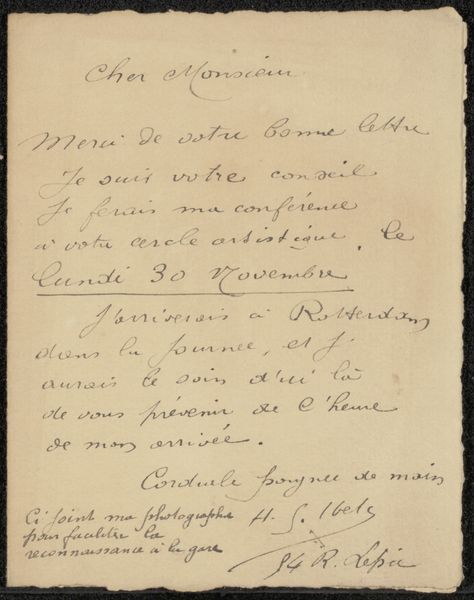 Cher Monsieur
Merci de votre bonne lettre
Je suis votre conseil
Je ferais ma conférence
à votre cercle artistique. le
lundi 30 Novembre
J'arriverais à Rotterdam
dans la journée, et j'
aurais le soin d'ici là
de vous prévenir de l'heure
de mon arrivée.
Cordiale poignée de main
H. G. Ibels
54 R. Lepic
Ci joint ma photographie
pour faciliter la
reconnaissance à la gare